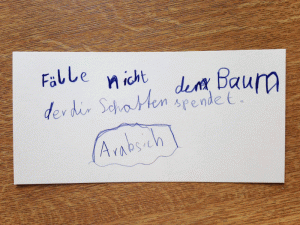 Fälle nicht den Baum
der dir Schatten spendet.
Arabsich